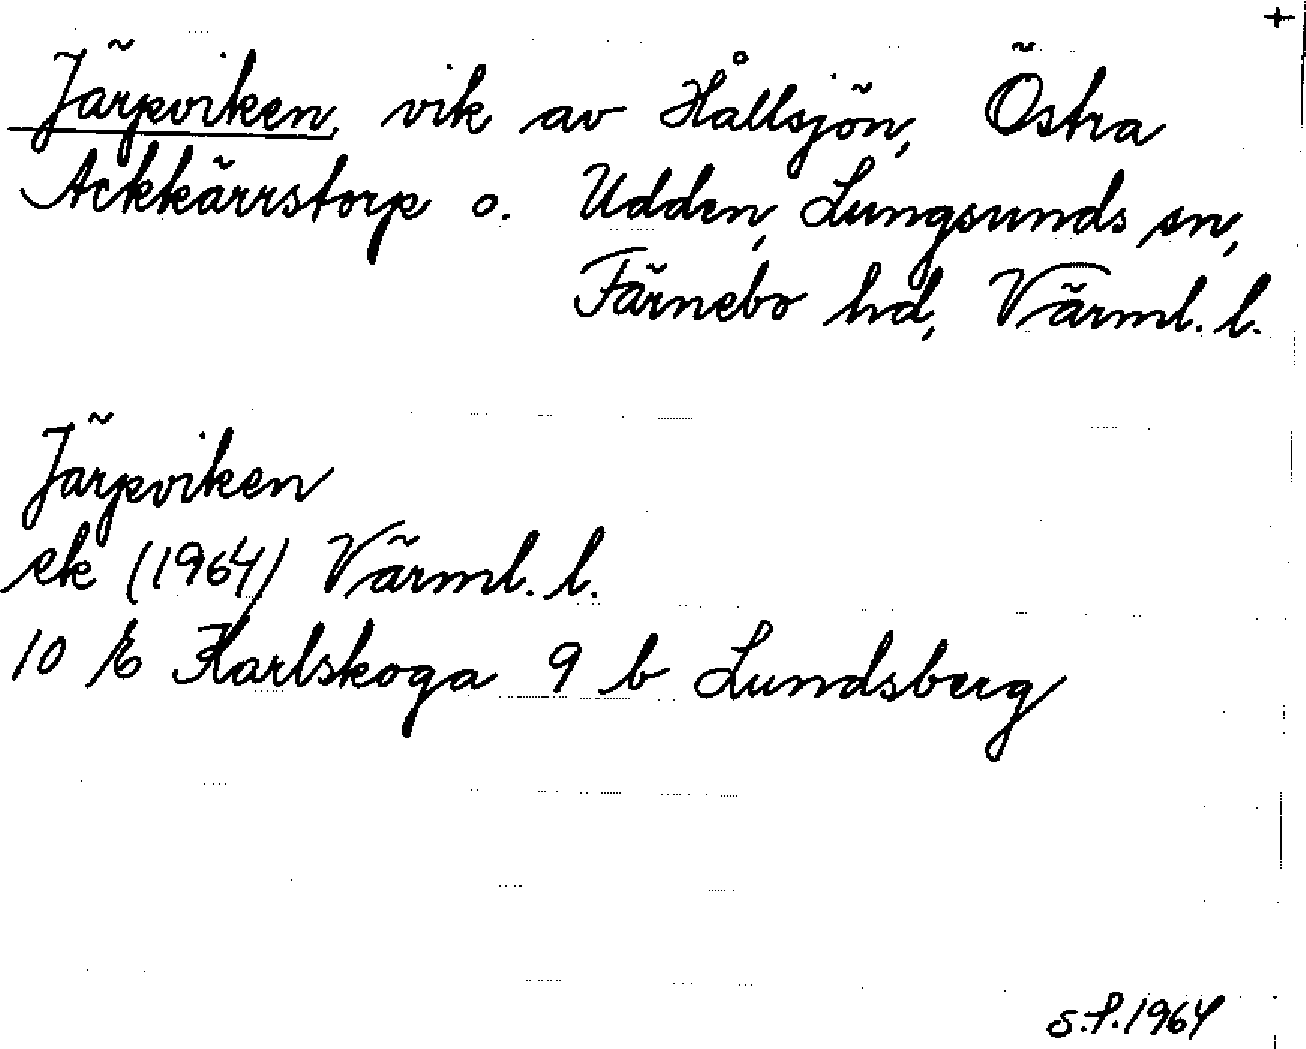 +
Järpviken, vik av Hållsjön, Östra
Ackkärrstorp o. Udden, Lungsunds sn,
Färnebo hd, Värml. l.
Järpviken
ek (1964) Värml. l.
10 E Karlskoga 9 b Lundsberg
S.F. 1964